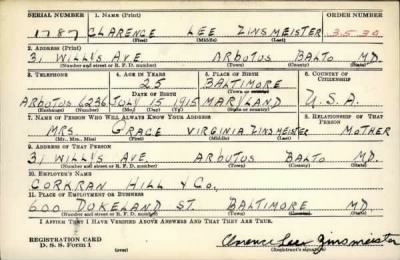 SERIAL NUMBER 1. NAME (Print) ORDER NUMBER
1787 CLARENCE LEE ZINSMEISTER
(First) (Middle) (Last)
2. ADDRESS (Print)
31 WILLIS AVE ARBUTUS BALTO MD.
(Number and street or R. F. D. number) (Town) (County) (State)
3. TELEPHONE 4. AGE IN YEARS 5. PLACE OF BIRTH 6. COUNTRY OF CITIZENSHIP
25 BALTIMORE
DATE OF BIRTH (Town or county)
ARBUTUS 6236 JULY 15 1915 MARYLAND U.S.A.
(Exchange) (Number) (Mo.) (Day) (Yr.) (State or country)
7. NAME OF PERSON WHO WILL ALWAYS KNOW YOUR ADDRESS 8. RELATIONSHIP OF THAT PERSON
MRS. GRACE VIRGINIA ZINSMEISTER MOTHER
(Mr., Mrs., Miss) (First) (Middle) (Last)
9. ADDRESS OF THAT PERSON
31 WILLIS AVE ARBUTUS BALTO MD.
(Number and street or R. F. D. number) (Town) (County) (State)
10. EMPLOYER'S NAME
CORKRAN HILL & CO.,
11. PLACE OF EMPLOYMENT OR BUSINESS
600 DUKELAND ST. BALTIMORE MD.
(Number and street or R. F. D. number) (Town) (County) (State)
I AFFIRM THAT I HAVE VERIFIED ABOVE ANSWERS AND THAT THEY ARE TRUE.
REGISTRATION CARD
D. S. S. Form 1 (over) Clarence Lee Zinsmeister
(Registrant's signature)